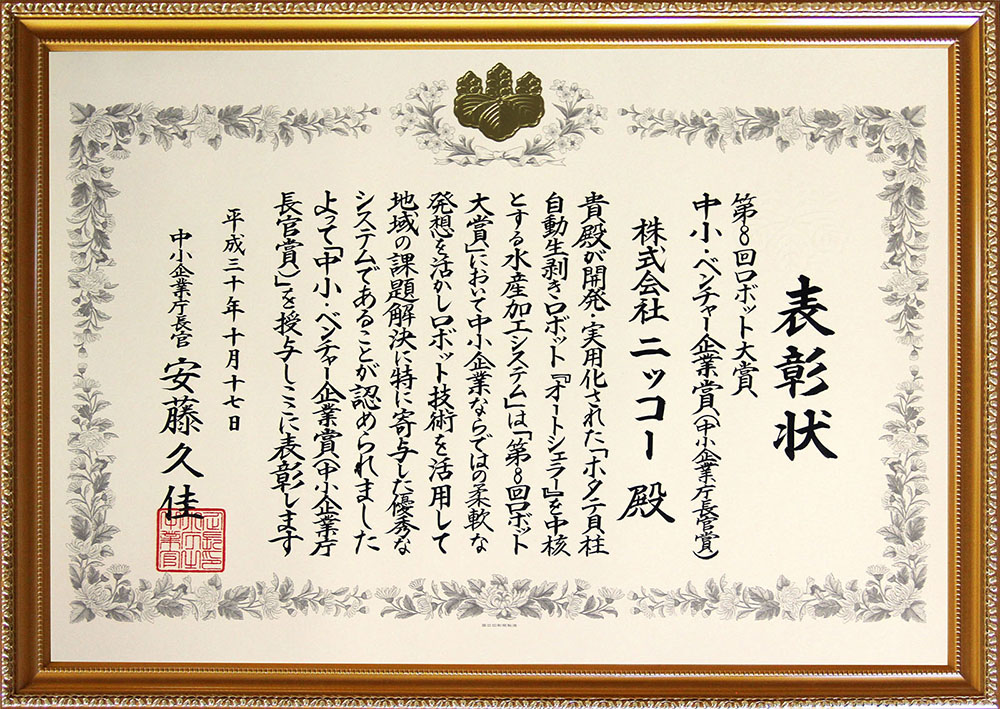 表彰状
第8回ロボット大賞
中小・ベンチャー企業賞(中小企業庁長官賞)
株式会社 ニッコー 殿
貴殿が開発・実用化された「ホタテ貝柱
自動生剥きロボット『オートシェラー』を中核
とする水産加工システム」は「第8回ロボット
大賞」において中小企業ならではの柔軟な
発想を活かしロボット技術を活用して
地域の課題解決に特に寄与した優秀な
システムであることが認められました
よって「中小・ベンチャー企業賞(中小企業庁
長官賞)」を授与しここに表彰します
平成三十年十月十七日
中小企業庁長官 安藤久佳